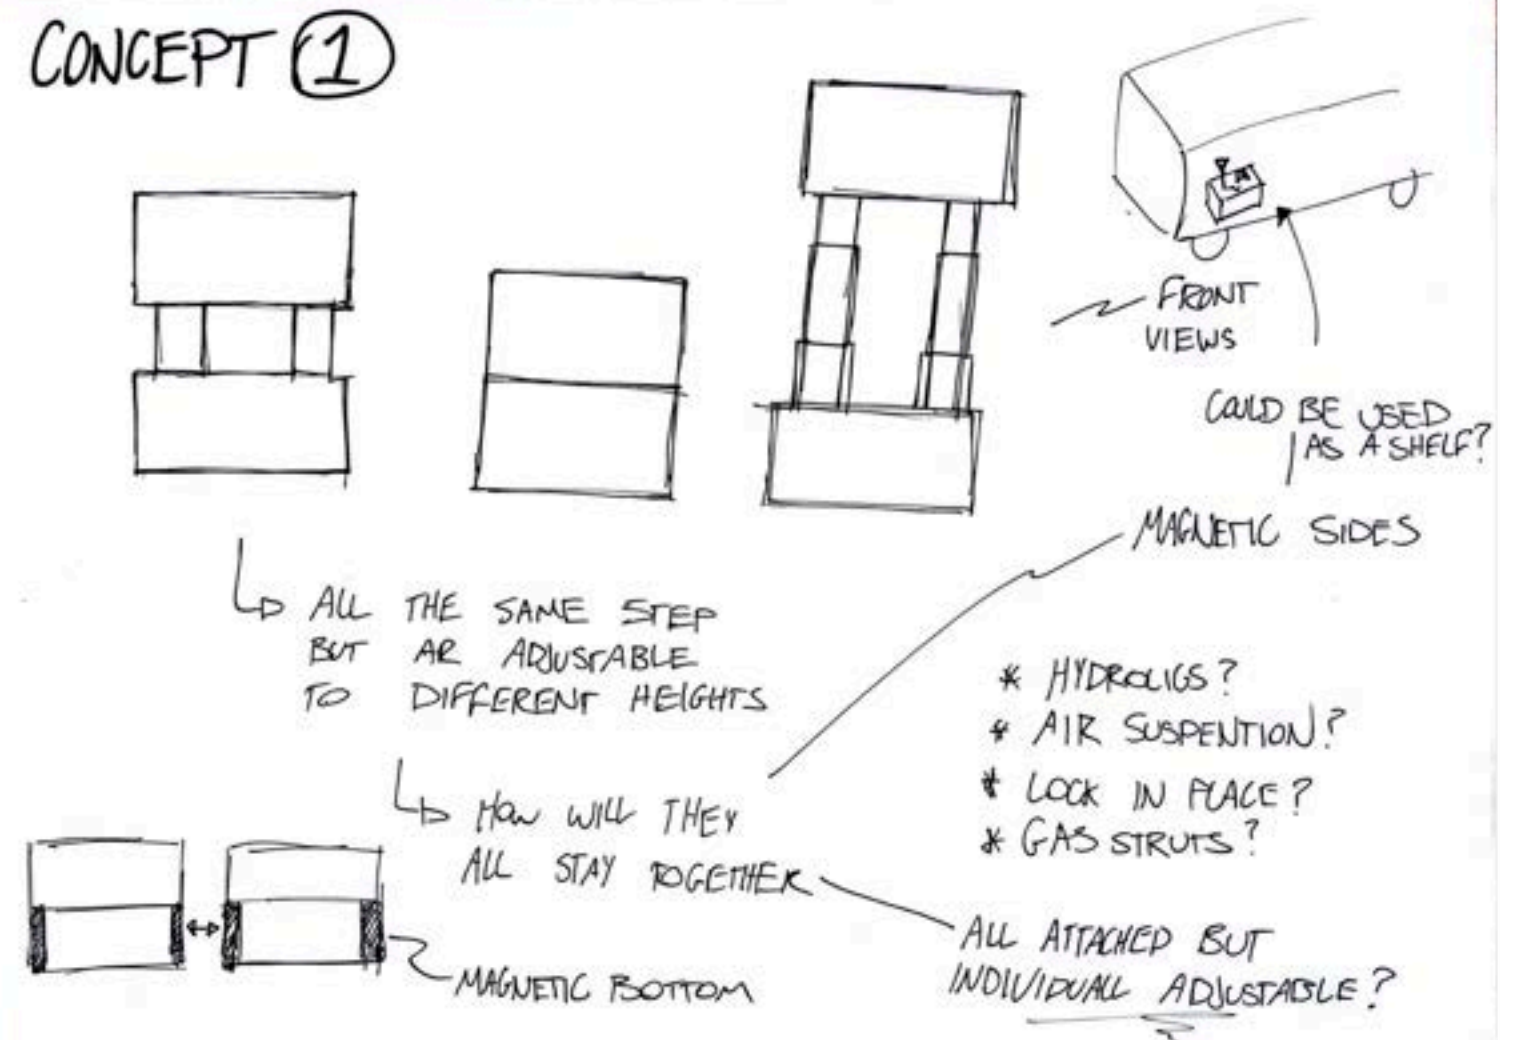 CONCEPT 1
FRONT
VIEWS
COULD BE USED
AS A SHELF?
MAGNETIC SIDES
ALL THE SAME STEP
BUT AR ADJUSTABLE
TO DIFFERENT HEIGHTS
* HYDROLIGS?
* AIR SUSPENTION?
* LOCK IN PLACE?
* GAS STRUTS?
HOW WILL THEY
ALL STAY TOGETHER
ALL ATTACHED BUT
INDIVIDUALL ADJUSTABLE?
MAGNETIC BOTTOM